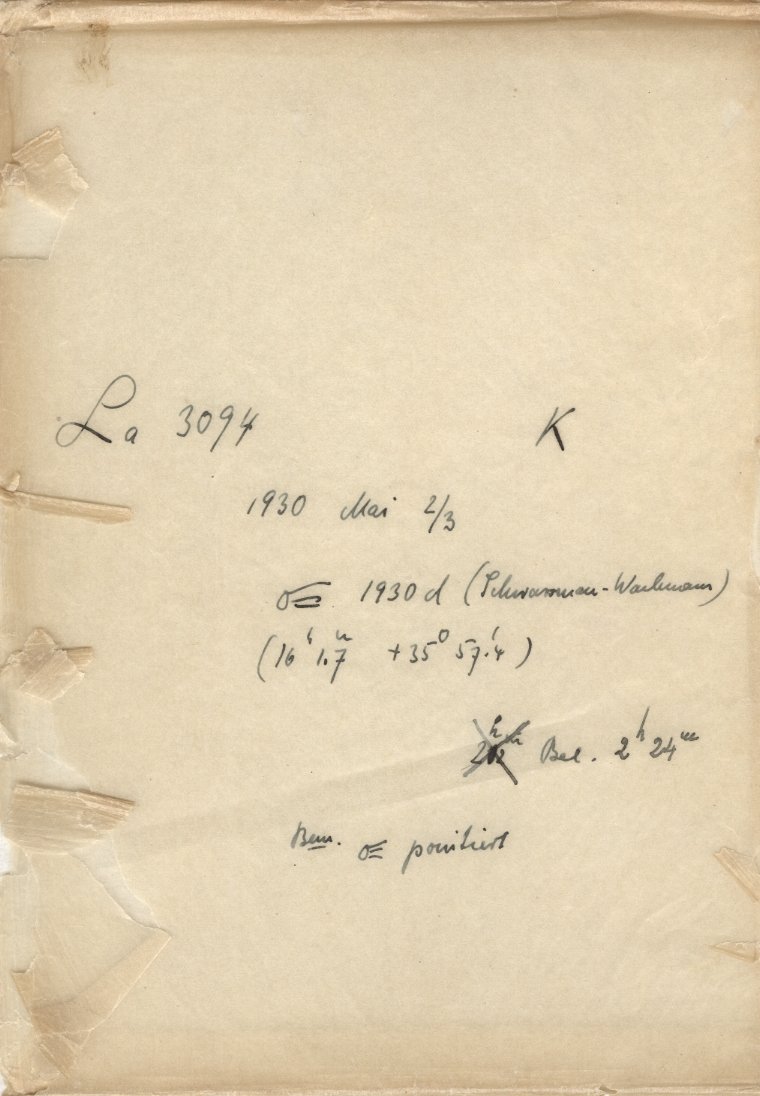 La 3094 K
1930 Mai 2/3
☄ 1930 d (Schwassmann-Wachmann)
(16ʰ 1.7ᵐ +35° 57.'4)
Bel. 2ʰ 24ᵐ
Bem. ☄ pointiert